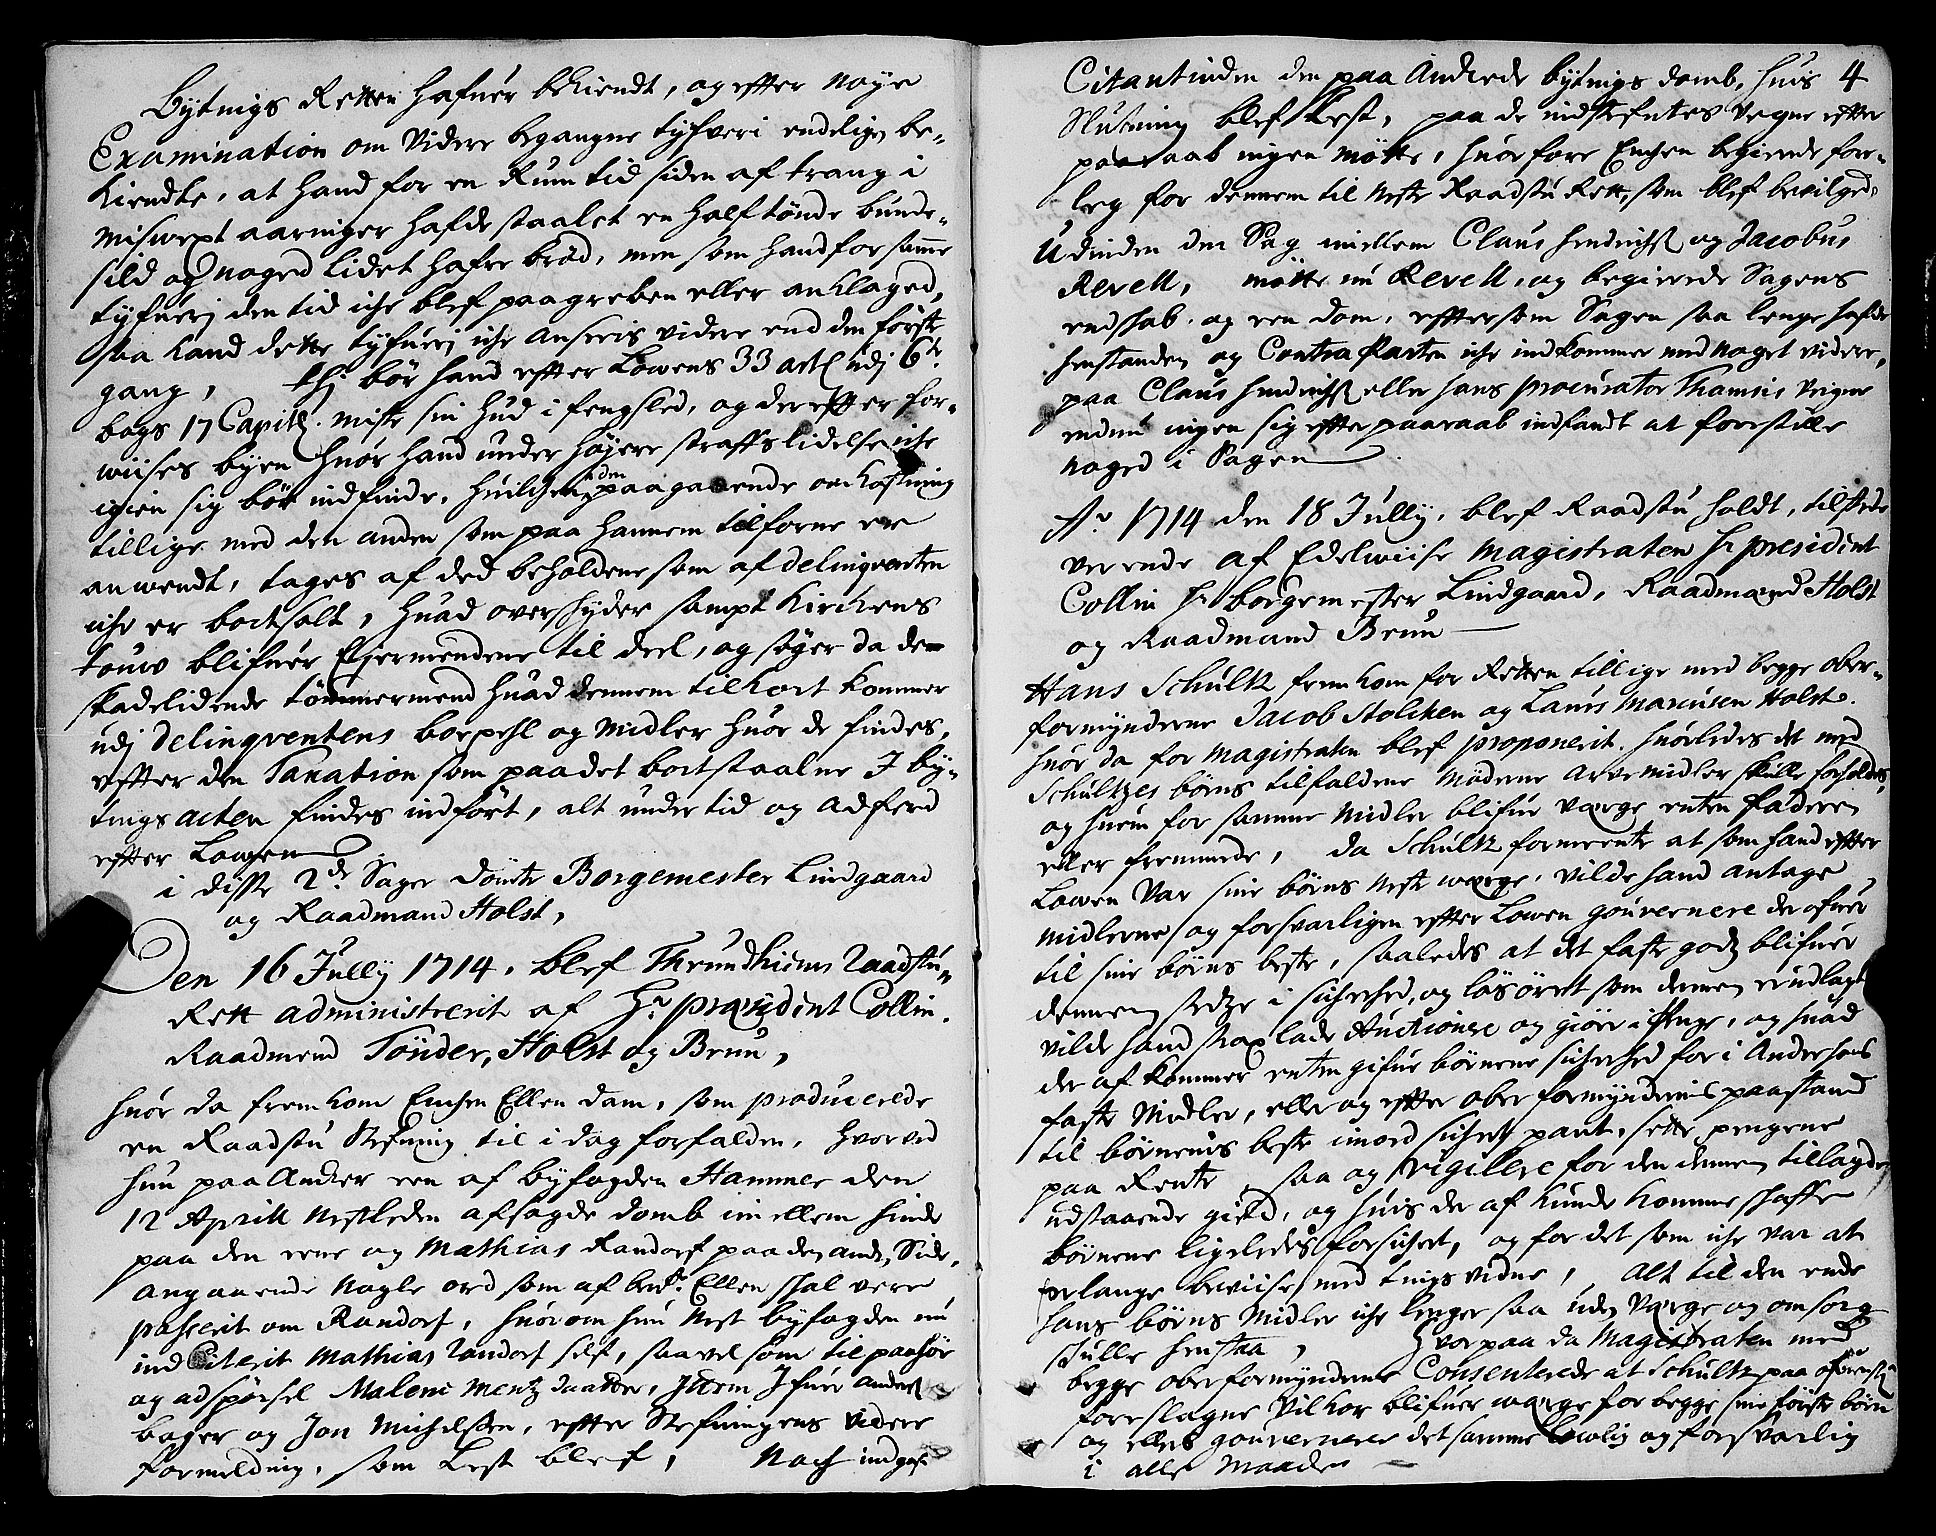 bytings Retten hafuer bekiendt, og efter nøye
Examination om videre begangne tyfveri endelig be-
kiendte, at hand for en Rum tid siden af trang i
misvext aaringer hafde staalet en half tønde bunde-
sild og noged lidet hafre brød, men som hand for samme
tyfuerj den tid iche blef paagreben eller anklaged,
saa kand dette tyfuerj iche ansees videre end den første
gang, thj bør hand efter Lowens 33 artl udj 6te
bogs 17 Capitl. miste sin hud i fengsled, og derefter for-
wiises byen huor hand under høyere straffs lidelse iche
igien sig bør indfinde, huilchen paagaaende omkostning
tillige med den anden som paa hannem tilforne er
anwendt, tages af ded beholdene som af delinqventen
iche er bortsolt, huad overskyder sampt Kirchens
touw blifuer Eyermendene til deel, og søger da de
skadelidende tømmermend huad dennem tilkort kommer
udj Delinqventens boepehl og midler huor de findes,
efter den Taxation som paa det bortstaalne I by-
tings acten findes indført, alt under tid og adferd
efter Lowen
i disse 2de Sager dømte Borgemester Lindgaard
og Raadmand Holst,
Den 16 Jully 1714, blef Thrundhiems Raadstu-
Rett administrerit af Hr. præsident Collin.
Raadmend Tønder, Holst og Brun,
huor da fremkom Enchen Ellen dam, som producerede
en Raadstu Stefning til i dag forfalden, hvorved
hun paa Ancker een af byfogden Hammer den
12 Aprill nestleden afsagde domb imellem hinde
paa den eene og Mathias Randorf paa den anden Side,
angaaende nogle ord som af bemte Ellen skal vere
passerit om Randorf, huorom hun nest byfogden nu
ind Citerit Mathias Randorf self, saavelsom til paahør
og adspørsel Malene Mentz daatter, Item Ifuer Anders
bager og Jon Michelsen, efter Stefningens videre
formelding, som Lest blef, Noch indgaf
Citantinden den paa Anckede bytings domb, huis 4
Slutning blef Lest, paa de indstefntes vegne efter
paaraab ingen møtte, huorfore Enchen begierede fore-
leg for dennem til neste Raadstu Rett, som blef bevilged.
Udinden den Sag imellem Claus Hendrichs og Jacobus
Revell, møtte nu Revell, og begierede Sagens
endskab og een dom, eftersom Sagen saa lenge hafde
henstanden og Contra Parten iche indkommer med noget videre,
paa Claus Hendrichs eller hans procurator Thamsis veigne
endnu ingen sig efter paaraab indfandt at forestille
noged i Sagen
Ao 1714 den 18 Jully, blef Raadstu holdt, tilstede
verende af Edelwiise Magistraten Hr president
Collin Hr borgemester Lindgaard, Raadmand Holst
og Raadmand Brun
Hans Schultz fremkom for Retten tillige med begge ober-
formynderne Jacob Stolcken og Laurs Marcusen Holst.
huor da for Magistraten blef proponerit, huorledes det med
Schultzes børns tilfaldene møderne arve midler skulle forholdes,
og huem for samme midler blifuer værge enten faderen
eller fremmede, da Schultz formeente at som hand efter
Lowen var sine børns neste werge, vilde hand antage
midlerne og forsvarligen efter Lowen gouvernere der ofuer
til sine børns beste, saaledes at det faste godz blifuer
dennem Setze i sicherhed, og løsøret som dennem er udlagt
vilde hand strax lade Auctionere og giøre i penge, og huad
der af kommer enten gifue børnene sicherhed for i Anderhaands
faste Midler, eller og efter ober formynderens paastand
til børnenes beste imod sichert pant, sette pengene
paa Rente, saa og vigillere for den dennem tillagde
udstaaende gield, og huis der af kunde komme skaffe
børnene ligeledes forsichert, og for det som iche var at
erlange beviise med tings vidne, Alt til den ende
hans børns Midler iche lenger saa uden Værge og omsorg
skulle henstaa, Hvorpaa da Magistraten med
begge oberformynderne Consenterede at Schultz paa ofuenstd
foreslagne Vilkor blifuer werge for begge sine første børn
og ellers gouvernerer det samme Lovlig og forsvarlig
i alle Maader